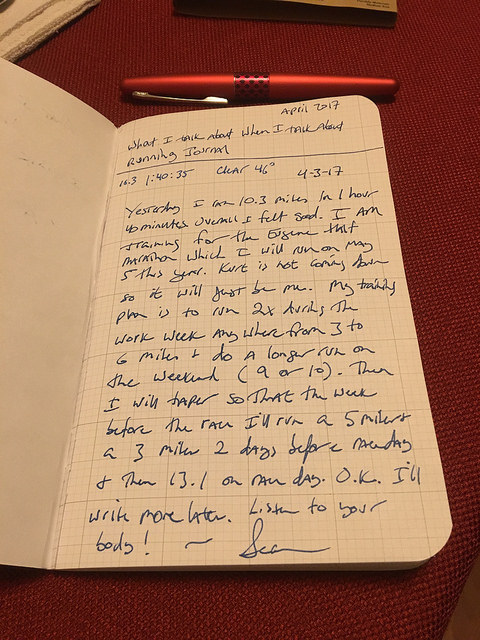 April 2017
What I talk About When I talk About
Running Journal
10.3 1:40:35 Clear 46° 4-3-17
Yesterday I ran 10.3 miles in 1 hour
40 minutes overall I felt good. I AM
training for the Eugene Half
marathon which I will run on May
5 this year. Kurt is not coming down
so it will just be me. My training
plan is to run 2x during the
work week anywhere from 3 to
6 miles + do a longer run on
the weekend (9 or 10). Then
I will taper so that the week
before the race I'll run a 5 miler +
a 3 miler 2 days before race day
+ then 13.1 on race day. O.K. I'll
write more later. Listen to your
body! ~ Sean